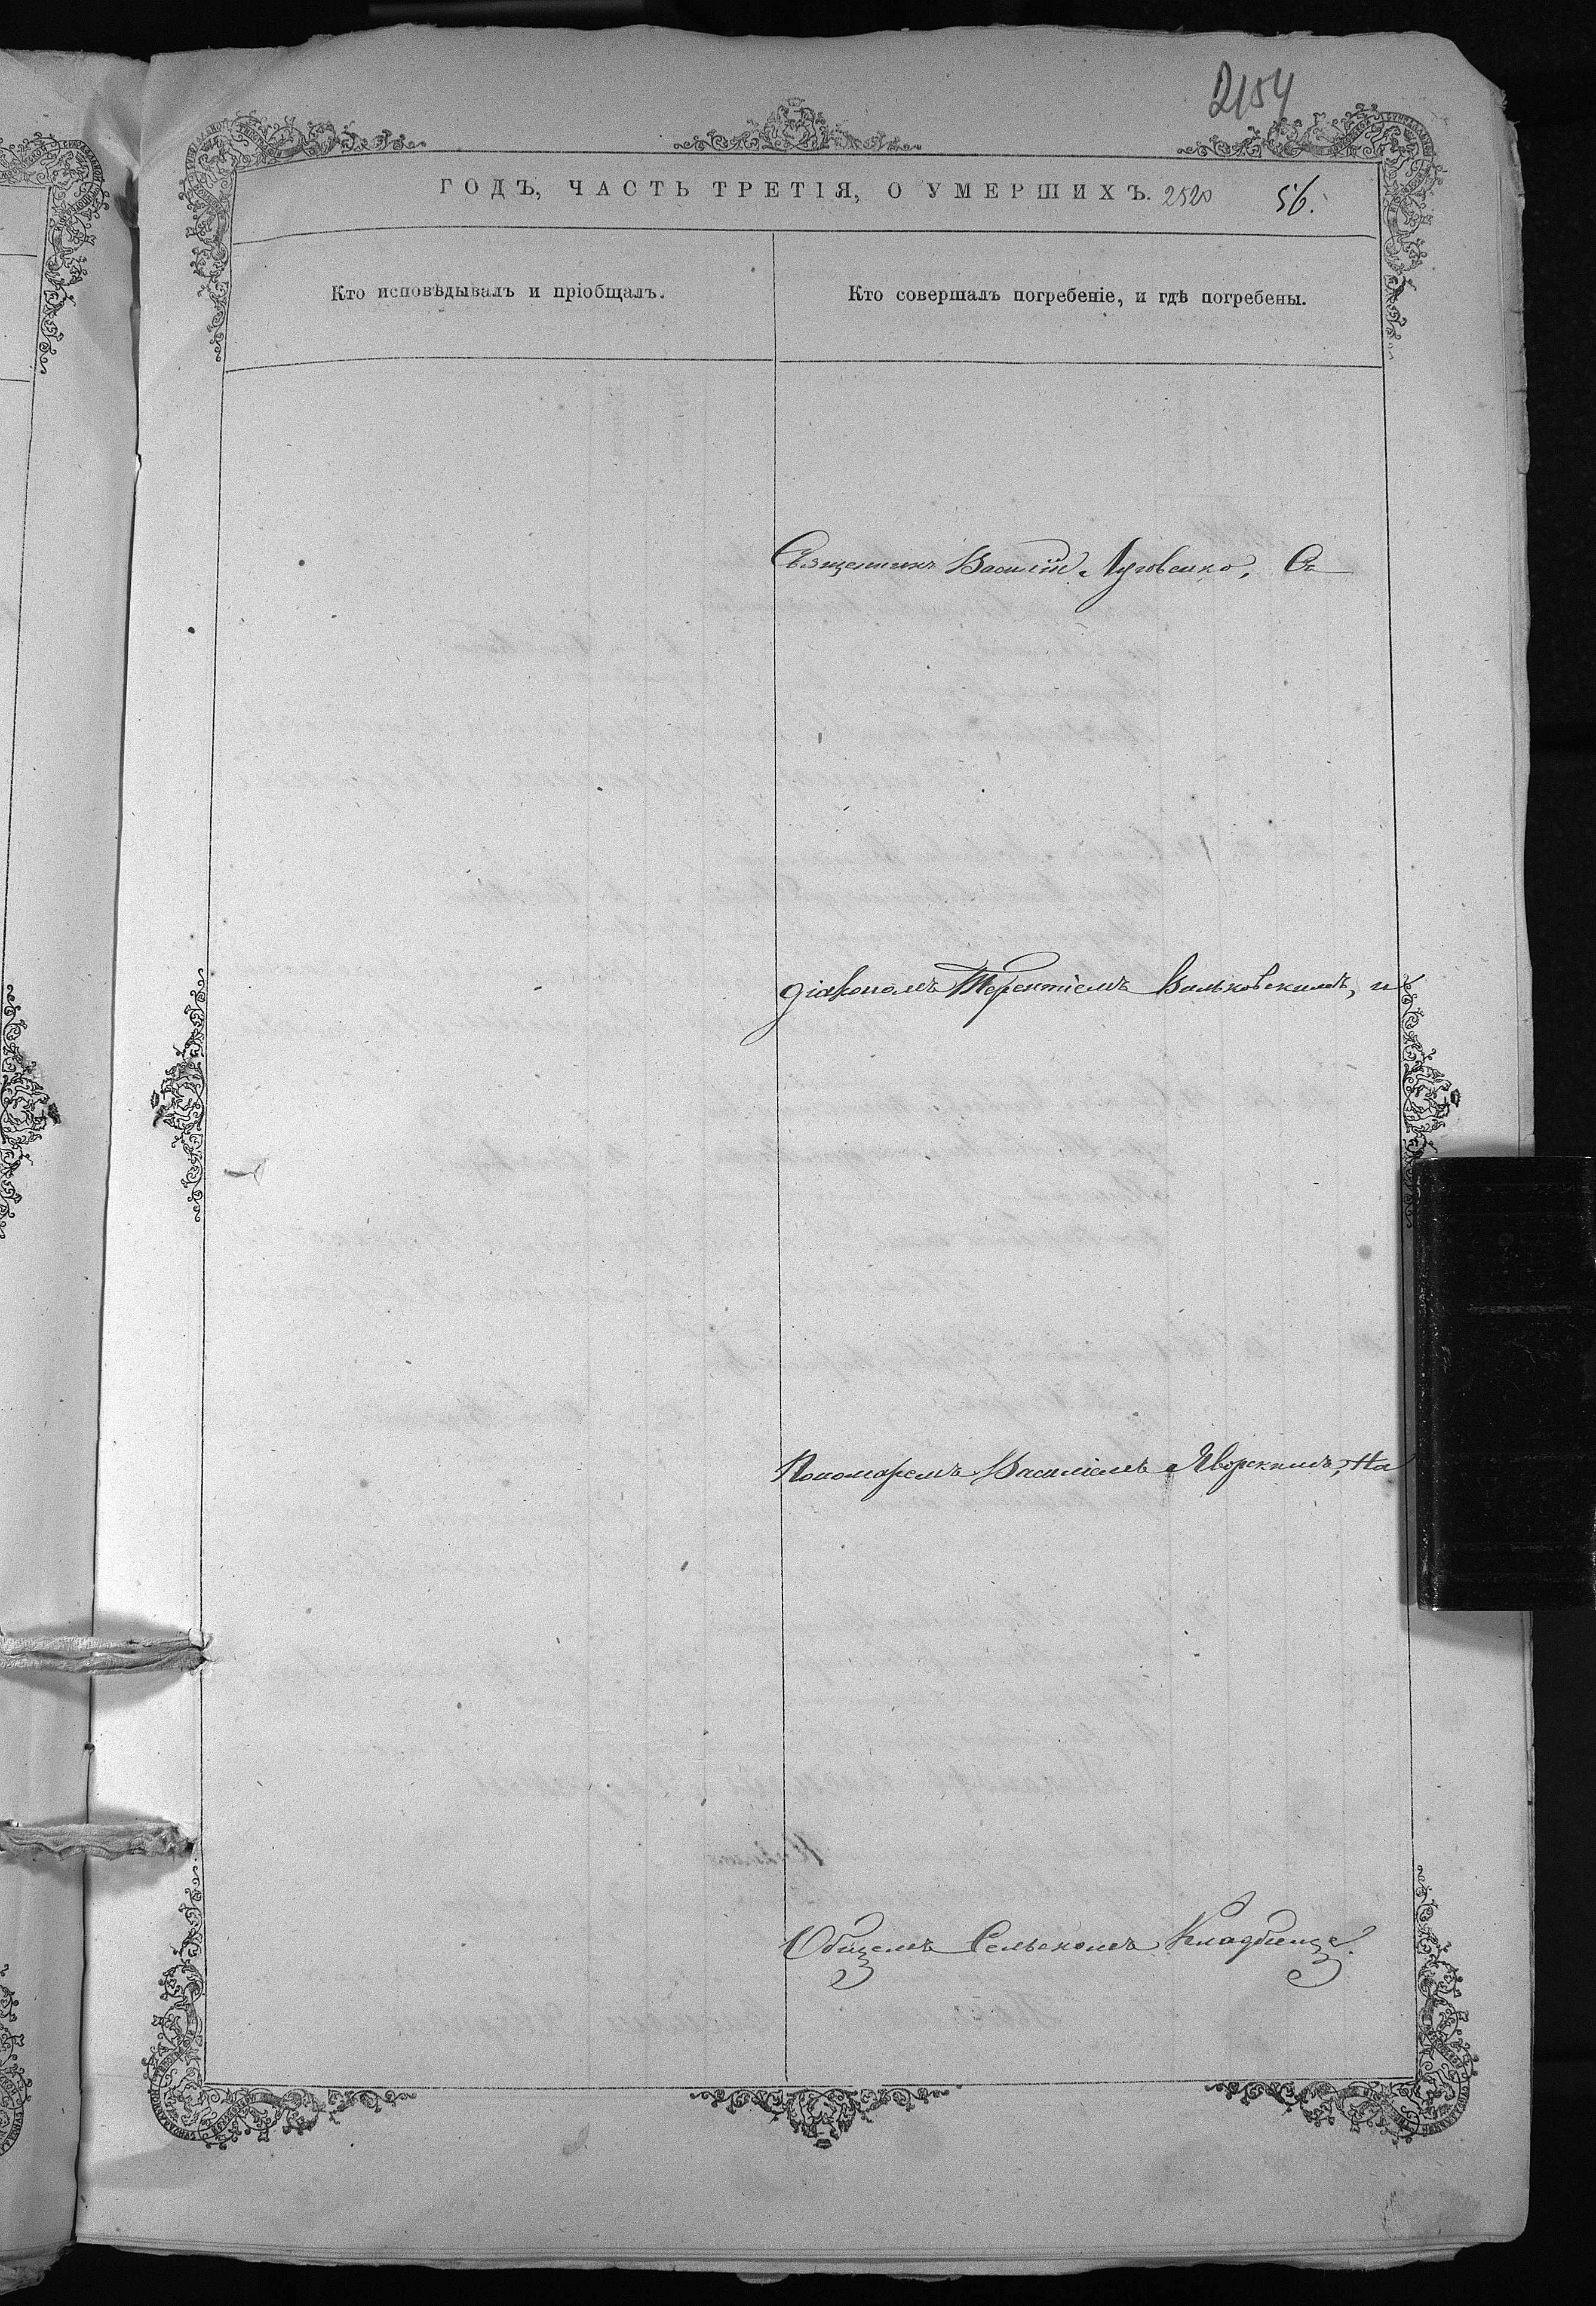 2154
ГОДЪ, ЧАСТЬ ТРЕТІЯ, О УМЕРШИХЪ. 2520 56.
Кто исповѣдывалъ и пріобщалъ.
Кто совершалъ погребеніе, и гдѣ погребены.
Священникъ Василій Луговенко, Съ
діакономъ Терентіемъ Вальковскимъ, и
Пономаремъ Василіемъ Яворскимъ, На
Общемъ Сельскомъ Кладбище.